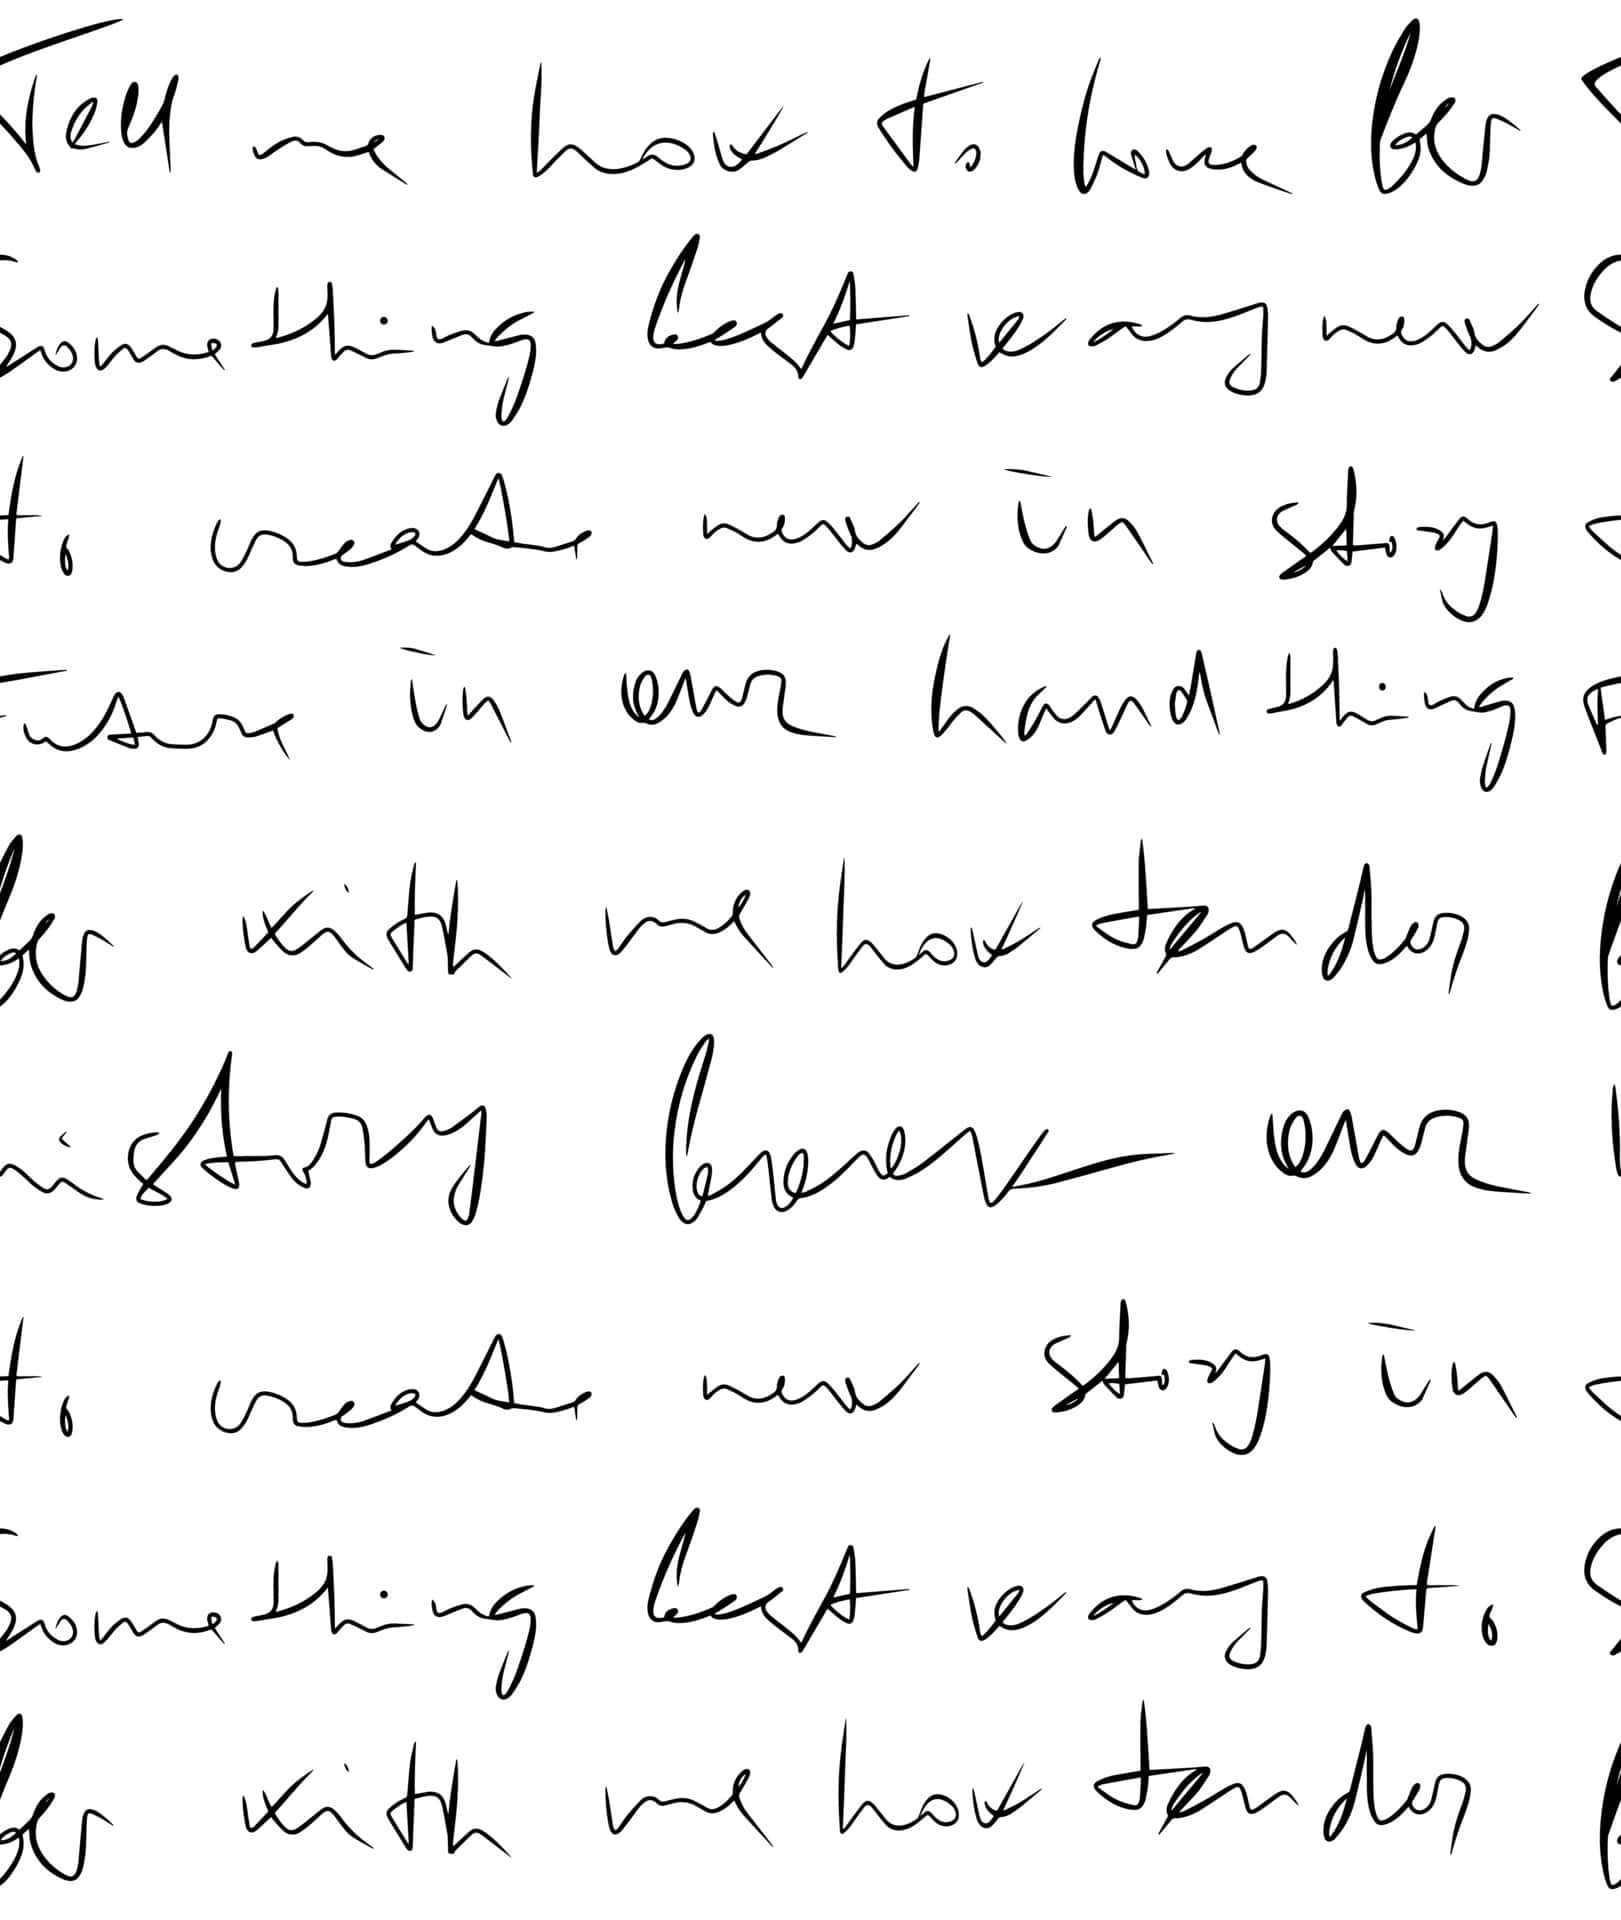 Tell me how to love for
Something best way new
to create new in story
future in our hand thing
for with me how tender
in story forever our
to create new story in
Something best way to
for with me how tender